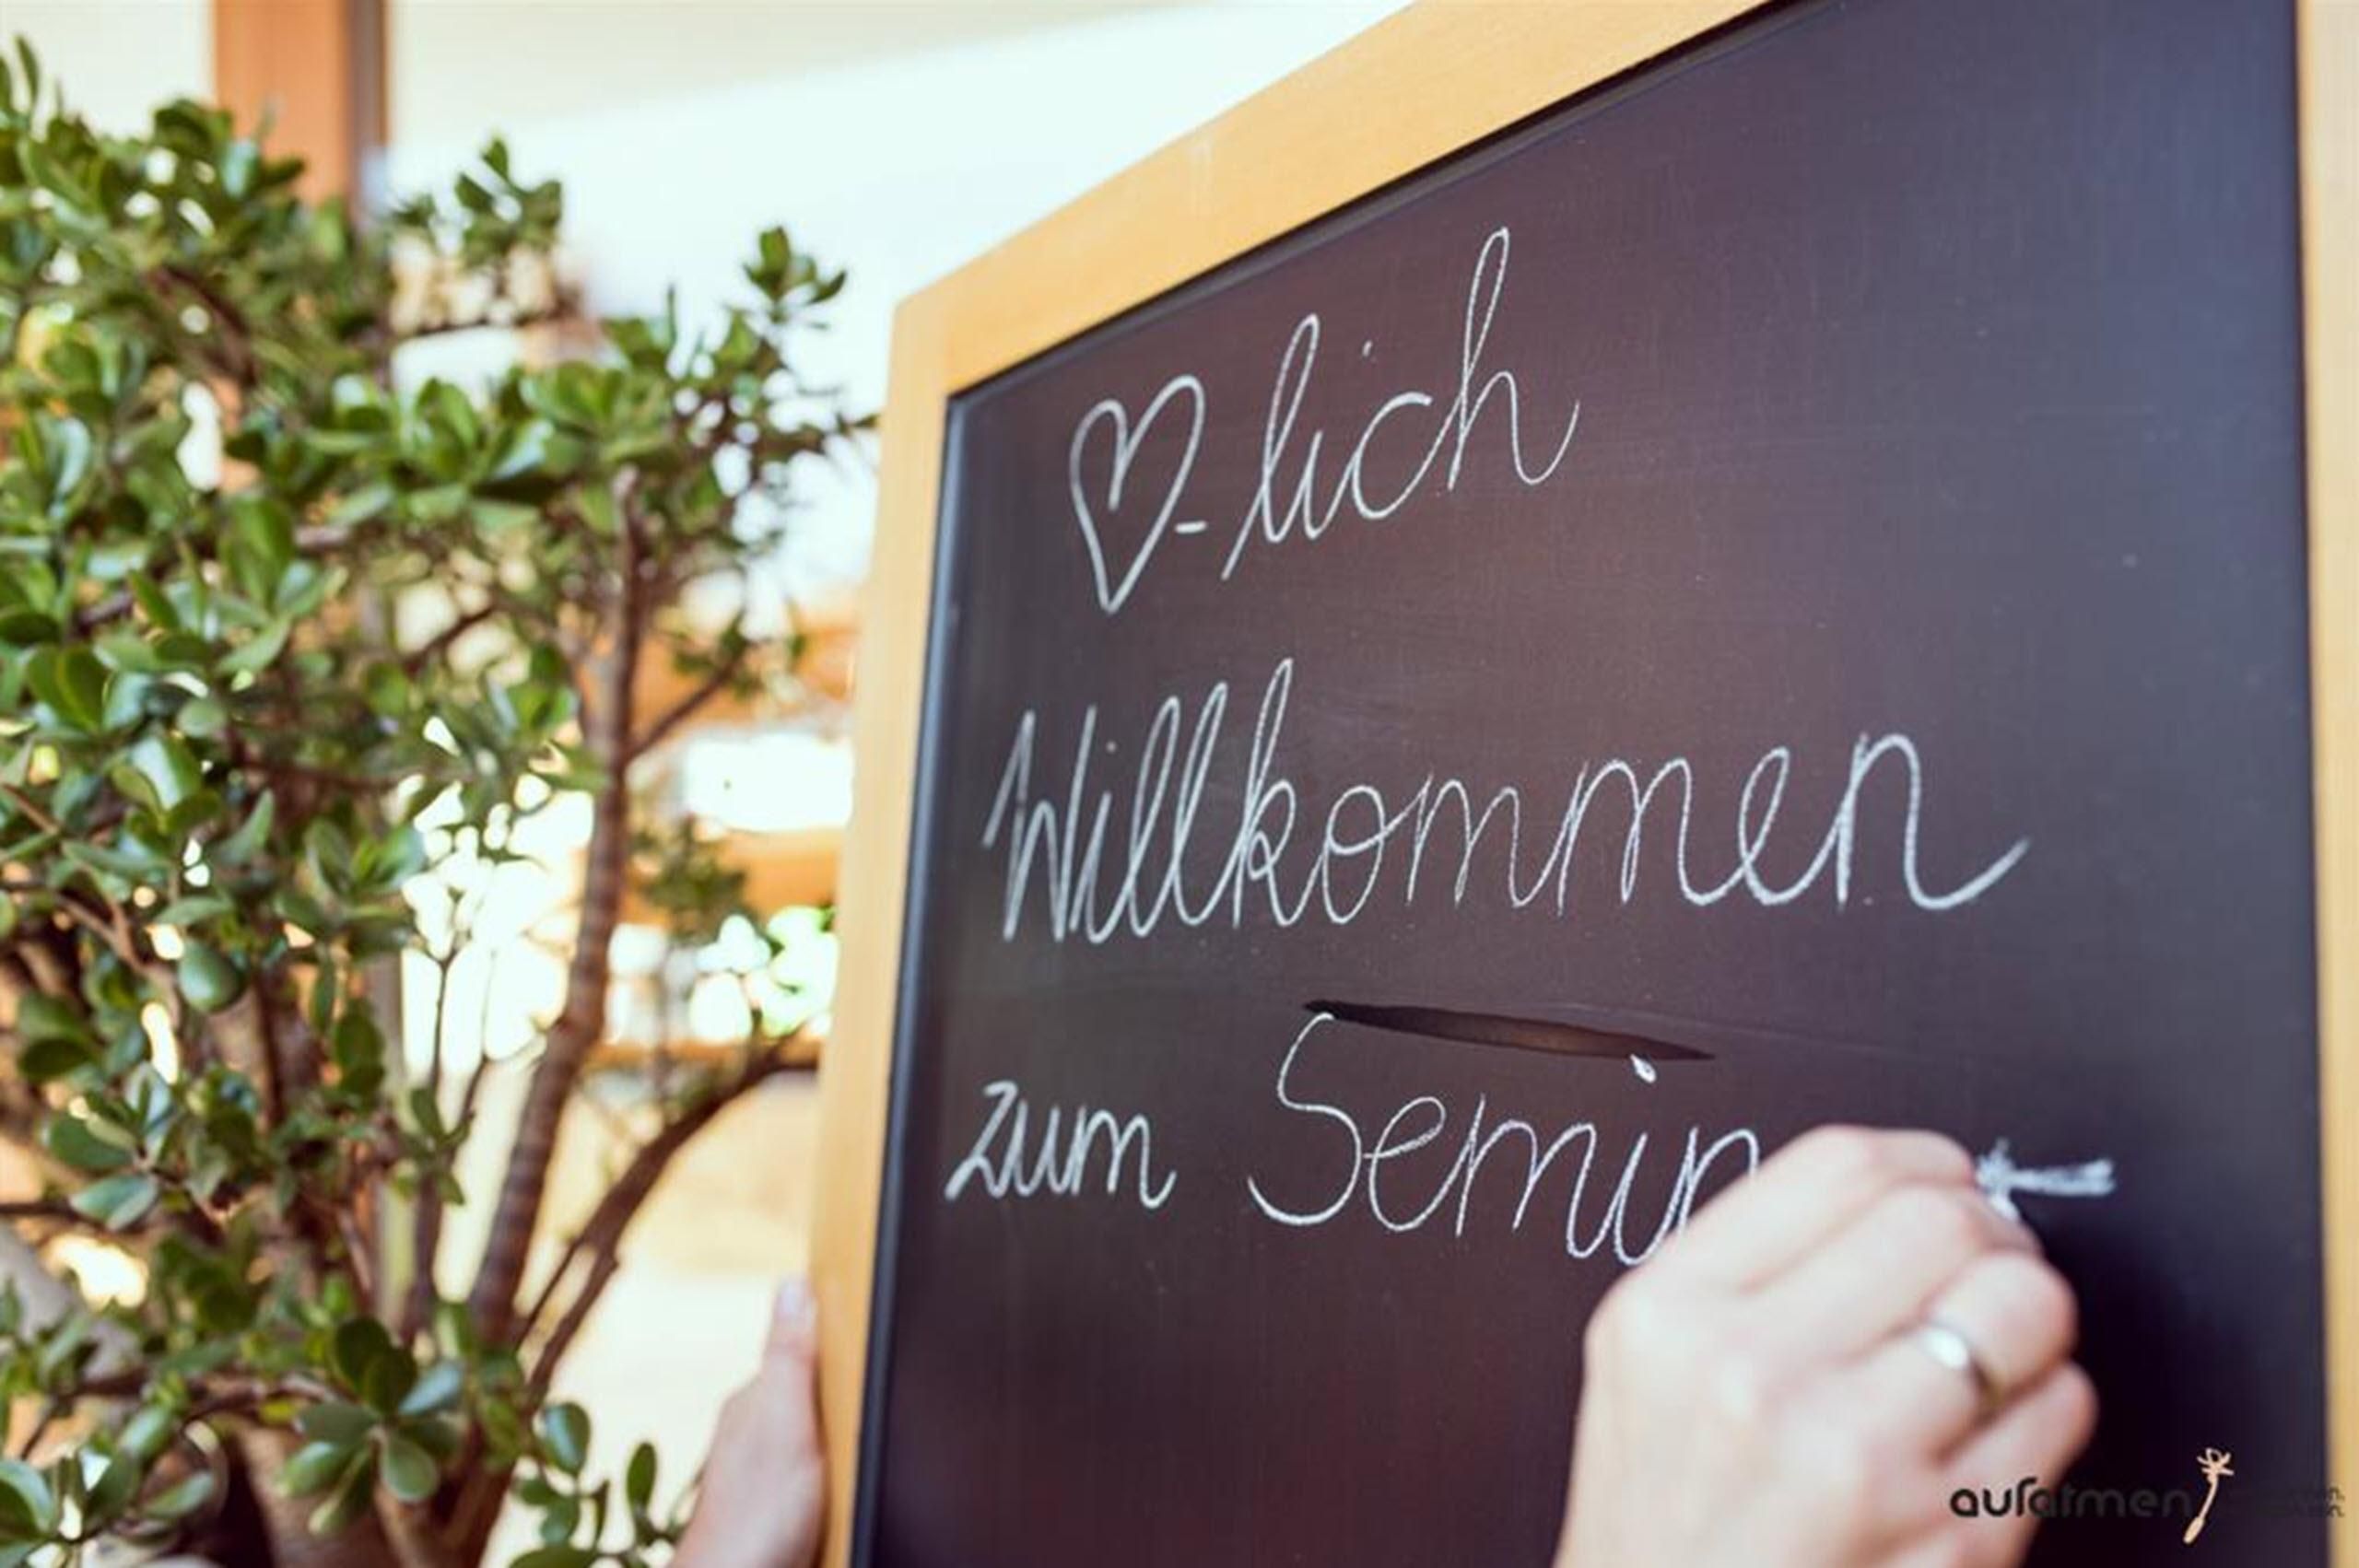 ♡-lich
Willkommen
zum Semin
aufatmen